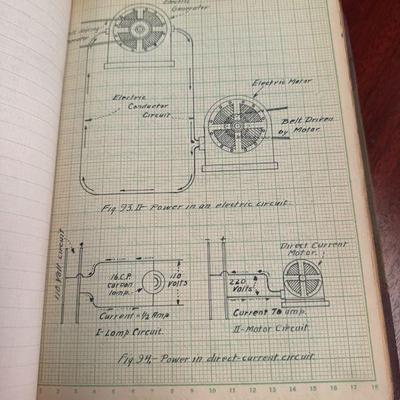 Electric
Generator
Electric Motor
Electric
Conductor
Circuit
Belt Driven
by Motor.
Fig. 93. II- Power in an electric circuit.
110 Volt circuit
16 C.P.
carbon
lamp.
110
Volts
Current = 1/2 Amp
I-Lamp Circuit.
Direct Current
Motor.
220
Volts
amp.
Current
II-Motor Circuit.
Fig. 94,- Power in direct-current circuit.
1 2 3 4 5 6 7 8 9 10 11 12 13 14 15 16 17 18